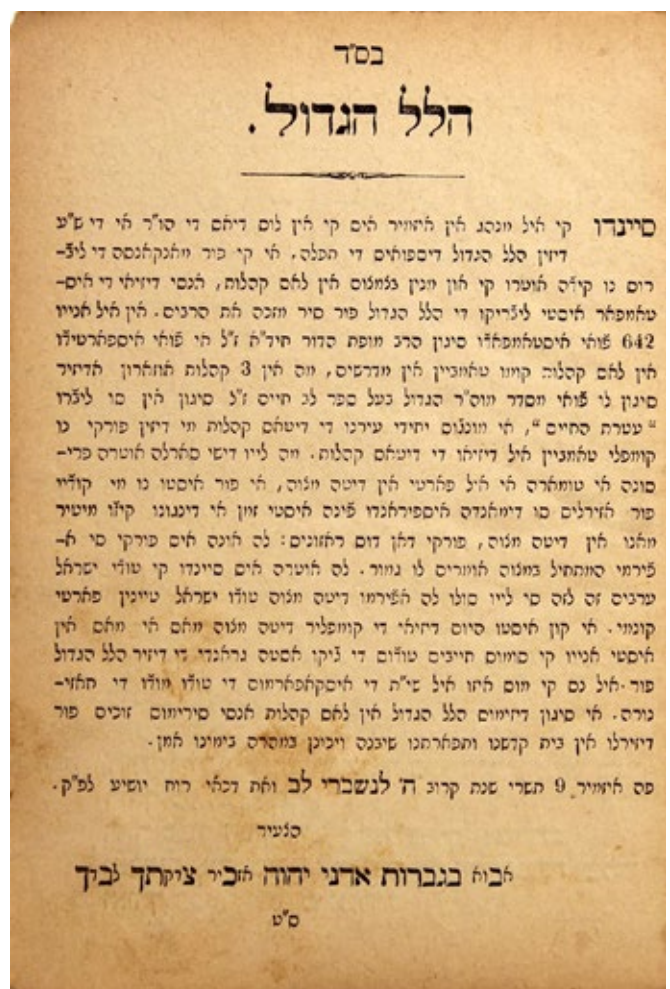 בס"ד
הלל הגדול.
סיינדו קי איל מנהג אין איזמיר אים קי אין לוס דיאם די הו"ר אי די ש"ע
דיזין הלל הגדול דיספואיס די תפלה, אי קי פור מאנקאנסה די ליב׳-
רוס נו קידה אוטרו קי און מנין בלמוס אין לאס קהלות, אנסי דיזיאי די איס-
טאמפאר איסטי ליב׳ריקו די הלל הגדול פור סיר מזכה את הרבים. אין איל אנייו
642 פ׳ואי איסטאמפאדו סיגון הרב מופת הדור חיד"א ז"ל הי פ׳ואי איספארטידו
אין לאס קהלות קומו טאמביין אין מדרשים, מה אין 3 קהלות אוזארון אדיזיר
סיגון לי פ׳ואי מסדר מוה"ר הגדול בעל ספר לב חיים ז"ל סיגון אין סו ליב׳רו
"עטרת החיים", אי מונגוס יחידי עירנו די דיטאס קהלות מי דיזין פורקי נו
קומפלי טאמביין איל דיזיאו די דיטאס קהלות. מה לייו דישי סארלה אוטרה פרי-
סונה אי טומארה אי איל פארטי אין דיטה מצוה, אי פור איסטו נו מי קודייו
פור אזירלים סו דימאנדה איספיראנדו פ׳ינה איסטי זמן אי דינגונו קיזו מיטיר
מאנו אין דיטה מצוה, פורקי דאן דוס ראזונים: לה אונה אים פורקי סי א-
פ׳ירמי המתחיל במצוה אומרים לו גמור. לה אוטרה אים סיינדו קי טודו ישראל
ערבים זה לזה סי לייו סולו לה אפ׳ירמו דיטה מצוה טודו ישראל טיינין פארטי
קונמי. אי קון איסטו היום דיזיאי די קומפליר דיטה מצוה מאס אי מאס אין
איסטי אנייו קי סומוס חייבים טודוס די ג׳יקו אסטה גראנדי די דיזיר הלל הגדול
פור איל נס קי מוס איזו איל שי"ת די איסקאפארמוס די טודו מודו די חאזי-
נורה. אי סיגון דיזימוס הלל הגדול אין לאס קהלות אנסי סירימוס זוכים פור
דיזירלו אין בית קדשנו ותפארתנו שיבנה ויכונן במהרה בימינו אמן.
פה איזמיר 9 תשרי שנת קרוב ה' לנשברי לב ואת דכאי רוח יושיע לפ"ק.
הצעיר
אבוא בגברות אדני יהוה אזכיר צדקתך לבדך
ס"ט